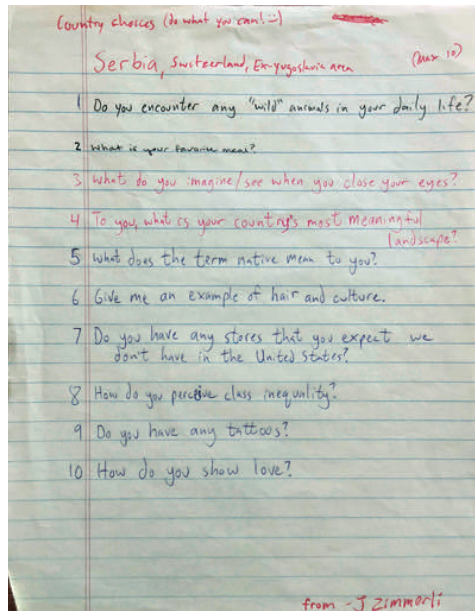 Country choices (do what you can! :-)
Serbia, Switzerland, Ex-yugoslavia area
(max 10)
1 Do you encounter any "wild" animals in your daily life?
2 What is your favorite meal?
3 What do you imagine/see when you close your eyes?
4 To you, what is your country's most meaningful
landscape?
5 what does the term native mean to you?
6 Give me an example of hair and culture.
7 Do you have any stores that you expect we
don't have in the United States?
8 How do you percieve class inequality?
9 Do you have any tattoos?
10 How do you show love?
from - J Zimmerli